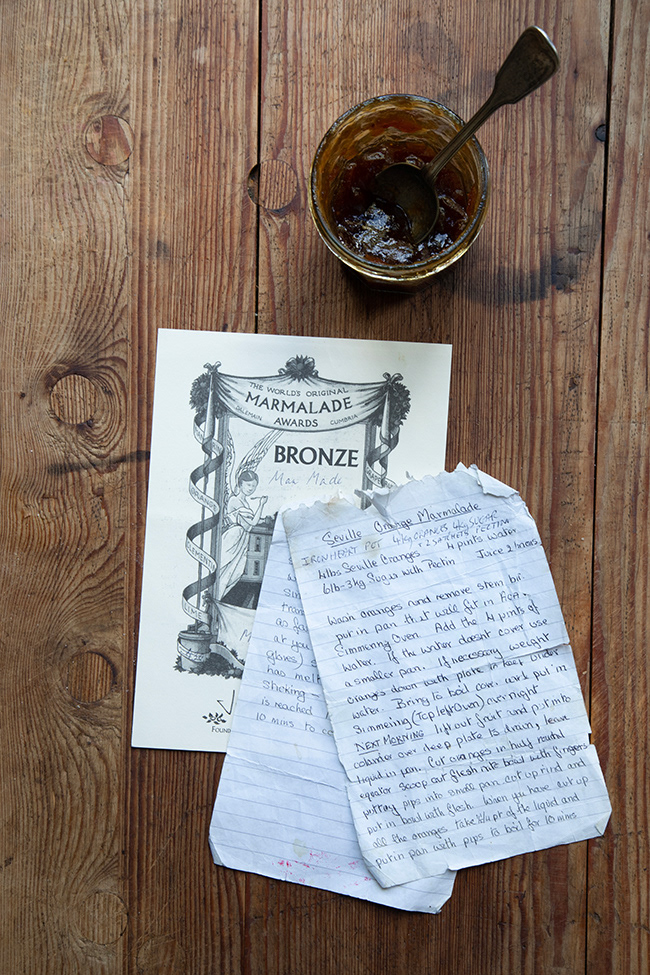 THE WORLD'S ORIGINAL
MARMALADE
DALEMAIN AWARDS CUMBRIA
BRONZE
Man Made
FOUND
Seville Orange Marmalade
IRONHEART POT 4kg ORANGES 4kg SUGAR
+ 2 SATCHETS PECTIN
4lbs Seville Oranges 4 pints water
6lb-3kg Sugar with Pectin Juice 2 lemons
Wash oranges and remove stem bit
put in pan that will fit in AGA
Simmering Oven. Add the 4 pints of
water. If the water doesnt cover use
a smaller pan. If necessary weight
oranges down with plate to keep under
water. Bring to boil cover and put in
Simmering (Top left Oven) overnight
NEXT MORNING lift out fruit and put into
colander over deep plate to drain, leave
liquid in pan. Cut oranges in half round
equator scoop out flesh into bowl with fingers
putting pips into small pan cut up rind and
put in bowl with flesh. When you have cut up
all the oranges take 1/4 pt of the liquid and
put in pan with pips to boil for 10 mins
as fa
at you
gloves) s
has melt
sticking
is reached
10 mins to co